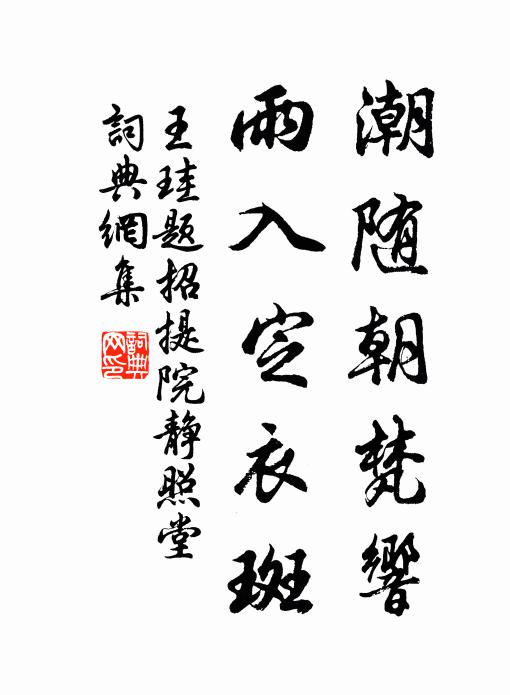 潮随朝梵響
雨入定衣斑
王珪题招提院静照堂
詞典網集
詞典網印